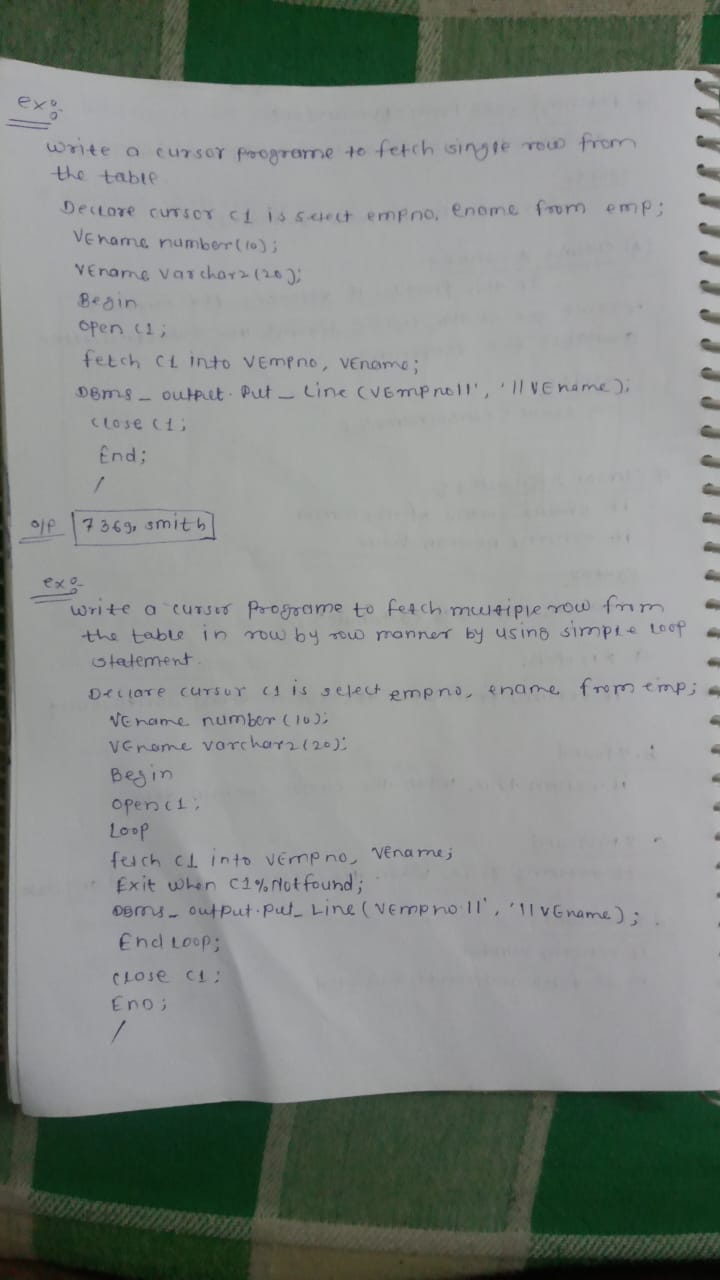 ex:-
write a cursor programe to fetch single row from
the table
Declare cursor c1 is select empno, ename from emp;
VEname number(10);
VEname varchar2(20);
Begin
open c1;
fetch c1 into VEmpno, VEname;
DBms_output.Put_Line(VEmpno||', '||VEname);
close c1;
End;
/
o/p 7369, smith
ex:-
write a cursor programe to fetch multiple row from
the table in row by row manner by using simple loop
statement.
Declare cursor c1 is select empno, ename from emp;
VEname number(10);
VEname varchar2(20);
Begin
open c1;
Loop
fetch c1 into VEmpno, VEname;
Exit when C1%Notfound;
DBms_output.put_Line(VEmpno||', '||VEname);
End Loop;
close c1;
End;
/